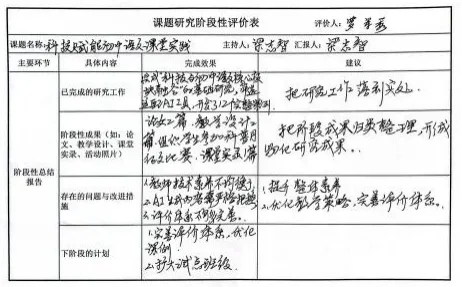 课题研究阶段性评价表
评价人：罗
课题名称：科技赋能初中语文课堂实践 主持人：梁志智 汇报人：梁志智
主要环节 具体内容 完成效果 建议
阶段性总结报告
已完成的研究工作
完成"科技与初中语文核心
融合"的基础研究，
AI工具，开发了12个
把研究工作落到实处。
阶段性成果（如：论
文、教学设计、课堂
实录、活动照片）
论文2篇，教学设计2
篇，组织学生参加科普月
征文比赛，课堂实录1篇
把阶段成果归类整理，形成
物化研究成果。
存在的问题与改进措
施
1.教师技术素养不均衡
2.AI生成内容需严格把握
3.评价体系不够完善。
1.提升整体素养
2.优化教学策略，完善评价体系。
下阶段的计划
1.完善评价体系，优化
课例
2.扩大试点班级。